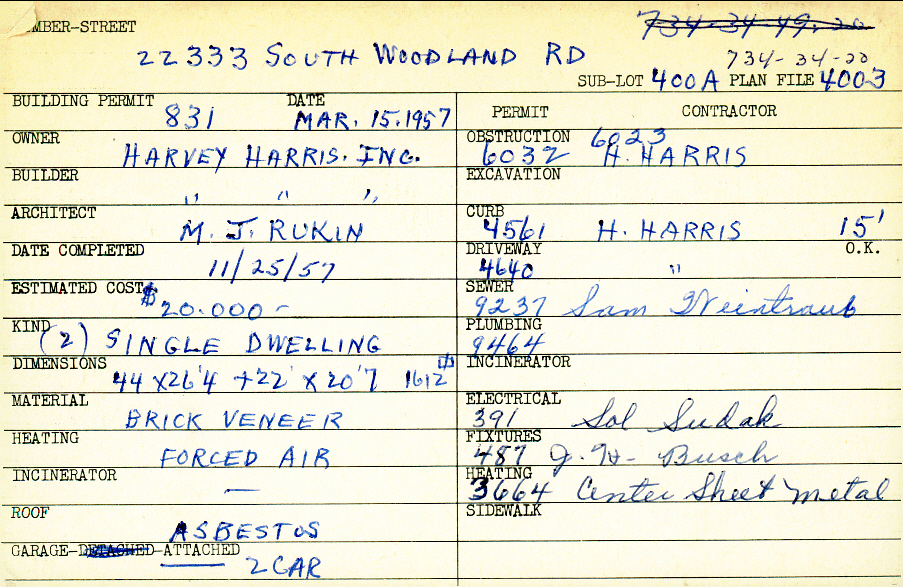 MBER-STREET
734-34-49.20
22333 SOUTH WOODLAND RD
734-34-20
SUB-LOT 400A PLAN FILE 4003
BUILDING PERMIT DATE
831 MAR. 15.1957
OWNER
HARVEY HARRIS. INC.
BUILDER
" " "
ARCHITECT
M. J. RUKIN
DATE COMPLETED
11/25/57
ESTIMATED COST
$20.000-
KIND
(2) SINGLE DWELLING
DIMENSIONS
44 X26'4 +22' X 20'7 1612
MATERIAL
BRICK VENEER
HEATING
FORCED AIR
INCINERATOR
—
ROOF
ASBESTOS
GARAGE-DETACHED-ATTACHED
2 CAR
PERMIT CONTRACTOR
OBSTRUCTION 6023
6032 H. HARRIS
EXCAVATION
CURB
4561 H. HARRIS 15'
DRIVEWAY O.K.
4640 "
SEWER
9237 Sam Weintraub
PLUMBING
9464
INCINERATOR
ELECTRICAL
391 Sol Sudak
FIXTURES
487 J. H- Busch
HEATING
3664 Center Sheet metal
SIDEWALK